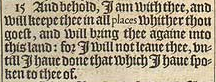 15 And behold, I am with thee, and
will keepe thee in all places whither thou
goest, and will bring thee againe into
this land: for I will not leaue thee, vn-
till I haue done that which I haue spo-
ken to thee of.